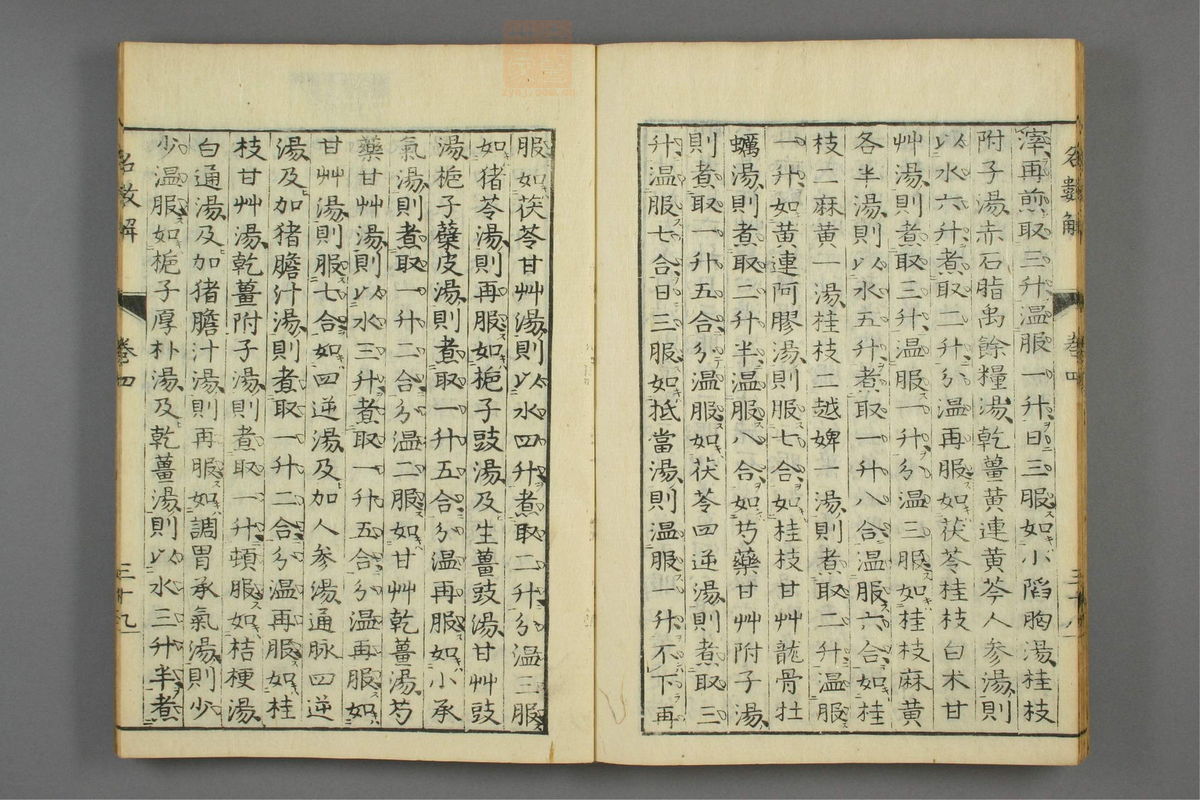 滓再煎取三升温服一升日三服如小陷胸湯桂枝
附子湯赤石脂禹餘糧湯乾薑黄連黄芩人参湯則
以水六升煮取二升分温再服如茯苓桂枝白朮甘
艸湯則煮取三升温服一升分温三服如桂枝麻黄
各半湯則以水五升煮取一升八合温服六合如桂
枝二麻黄一湯桂枝二越婢一湯則煮取二升温服
一升如黄連阿膠湯則服七合如桂枝甘艸龍骨牡
蠣湯則煮取二升半温服八合如芍藥甘艸附子湯
則煮取一升五合分温服如茯苓四逆湯則煮取三
升温服七合日三服如抵當湯則温服一升不下再
名數解 卷四 三十八
服如茯苓甘艸湯則以水四升煮取二升分温三服
如猪苓湯則再服如梔子豉湯及生薑豉湯甘艸豉
湯梔子蘗皮湯則煮取一升五合分温再服如小承
氣湯則煮取一升二合分温二服如甘艸乾薑湯芍
藥甘艸湯則以水三升煮取一升五合分温再服如
甘艸湯則服七合如四逆湯及加人参湯通脉四逆
湯及加猪膽汁湯則煮取一升二合分温再服如桂
枝甘艸湯乾薑附子湯則煮取一升頓服如桔梗湯
白通湯及加猪膽汁湯則再服如調胃承氣湯則少
少温服如梔子厚朴湯及乾薑湯則以水三升半煮
名数解 卷四 三十九